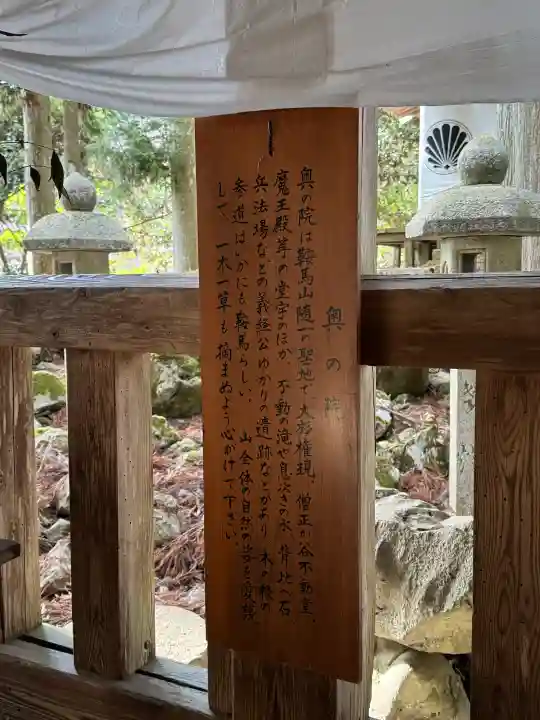 奥の院
奥の院は鞍馬山随一の聖地で、大杉権現、僧正が谷不動堂、
魔王殿等の堂宇のほか、不動の滝や息次ぎの水、背比べ石
兵法場などの義経公ゆかりの遺跡などがあり、木の根の
参道はいかにも鞍馬らしい、山全体の自然の
して、一木一草も摘まぬよう心がけて下さい。